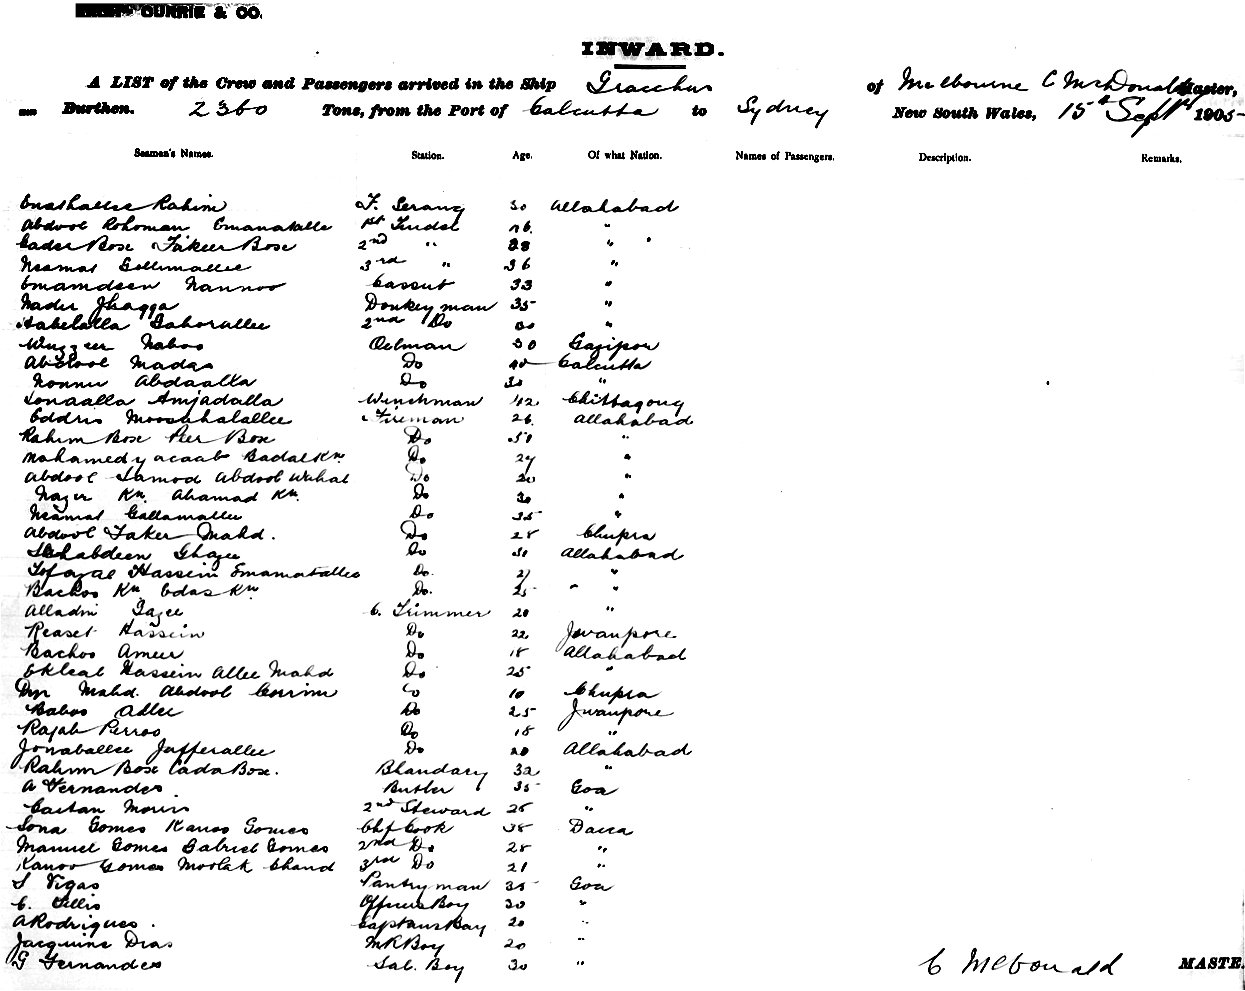 CURRIE & CO.
INWARD.
A LIST of the Crew and Passengers arrived in the Ship Gracchus of Melbourne C McDonald Master,
Burthen. 2360 Tons, from the Port of Calcutta to Sydney New South Wales, 15th Septr 1905
Seamen's Names. Station. Age. Of what Nation. Names of Passengers. Description. Remarks.
Rahim F. Serang 30 Allahabad
Abdool Rohoman Emanatalle 1st Tindel "
Cader Box Fakeer Box 2nd " 28 "
Neamat 3rd " 36 "
Emamdeen Nannoo Cassub 33 "
Nader Jhagga Donkeyman 35 "
2nd Do 30 "
Nahoo Oilman 30 Gazipor
Abdool Madas Do 40 Calcutta
Nonnu Abdaalla Do 30 "
Sonaalla Amjadalla Winchman 42 Chittagong
Eddris Moosahalallee Fireman 26 Allahabad
Rahim Box Peer Box Do 50 "
Mahamed yacaab Badal Kn. Do 24 "
Abdool Samod Abdool Wahab Do 20 "
Nazer Kn. Ahamad Kn. Do 30 "
Neamat Gollamallee Do 35 "
Abdool Faker Mahd. Do 28 Chupra
Ghazee Do 30 Allahabad
Tofazal Hassein Emamatallee Do. 21 "
Bachoo Kn Edas Kn Do. 25 " "
Alladin Gazee C. Trimmer 20 "
Reaset Hassein Do 22 Jwanpore
Bachoo Ameer Do 18 Allahabad
Ekleal Hassein Allee Mahd Do 25 "
Din Mahd. Abdool Corrim Do 10 Chupra
Baboo Adlee Do 25 Jwanpore
Rajab Perroo Do 18 "
Jonaballee Jafferallee Do 20 Allahabad
Rahim Box Cada Box. Bhandary 32 "
A Fernandes Butler 35 Goa
Caetan Moris 2nd Steward 28 "
Sona Gomes Kanoo Gomes Chf Cook 38 Dacca
Manuel Gomes Gabriel Gomes 2nd Do 28 "
Kanoo Gomes Moolak Chand 3rd Do 21 "
S Vigas Pantryman 35 Goa
C. Tellis Officers Boy 20 "
A Rodrigues. Captains Boy 20 "
Jacquine Dias MR Boy 20 "
G Fernandes Sal. Boy 30 "
C McDonald MASTE